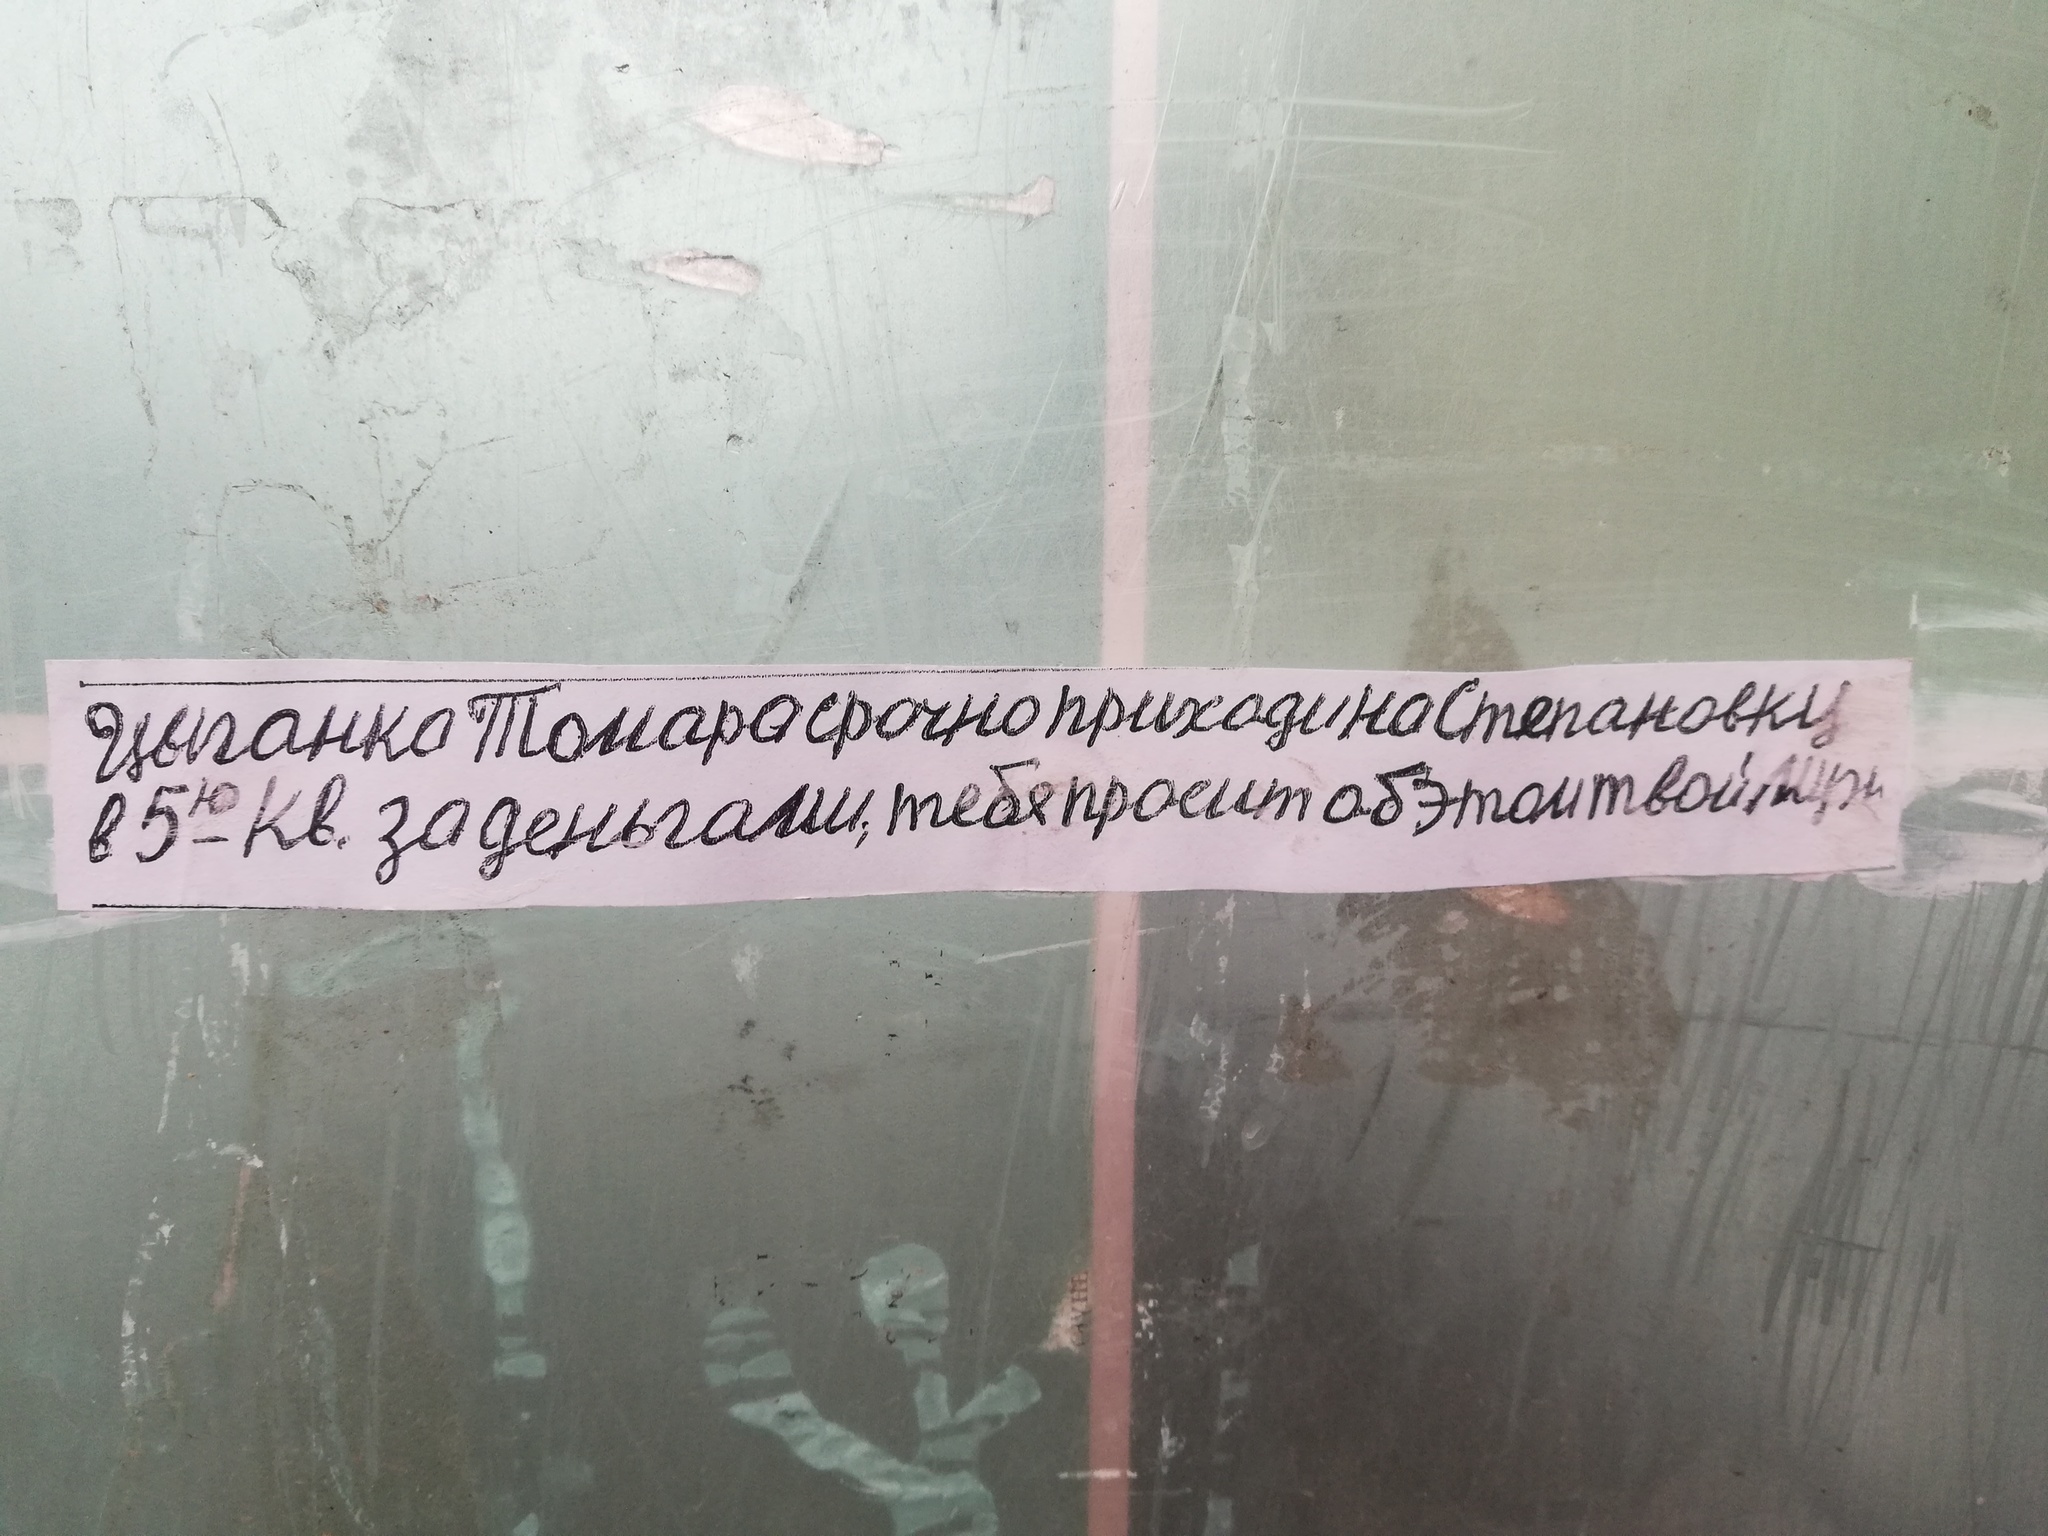 Цыганка Томара срочно приходи на Степановку
в 5ю кв. за деньгами, тебя просит об этом твой муж